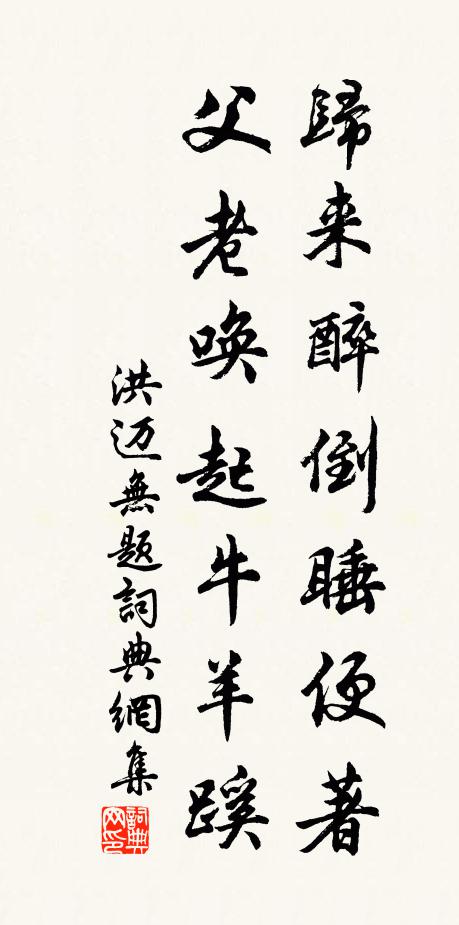 歸来醉倒睡便著
父老喚起牛羊蹊
洪迈無题詞典網集
詞典网印